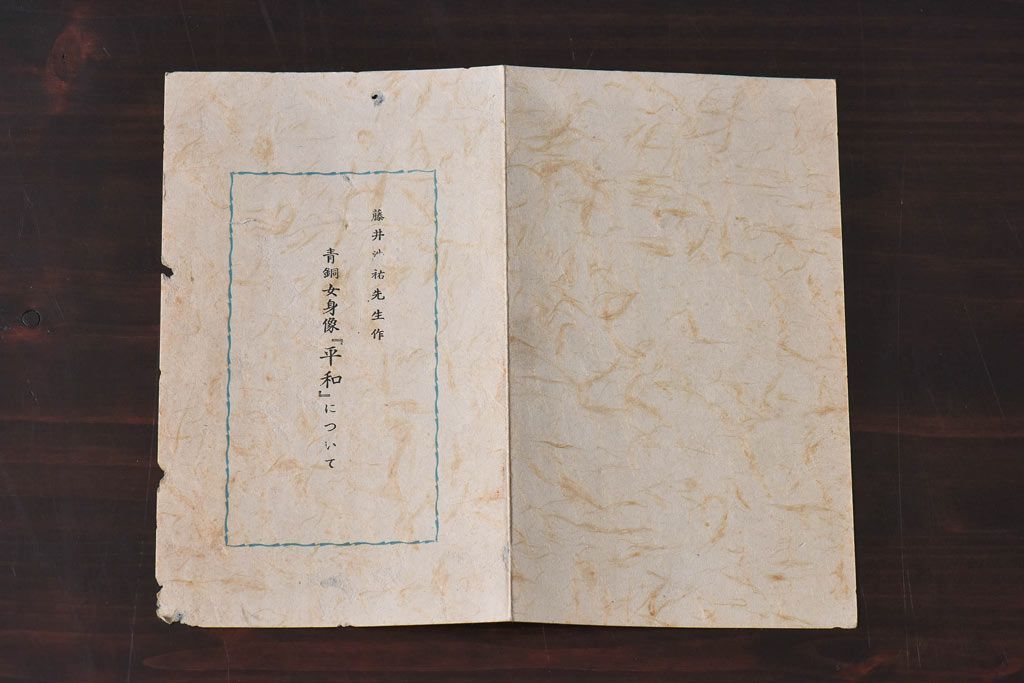 藤井浩祐先生作
青銅女身像『平和』について